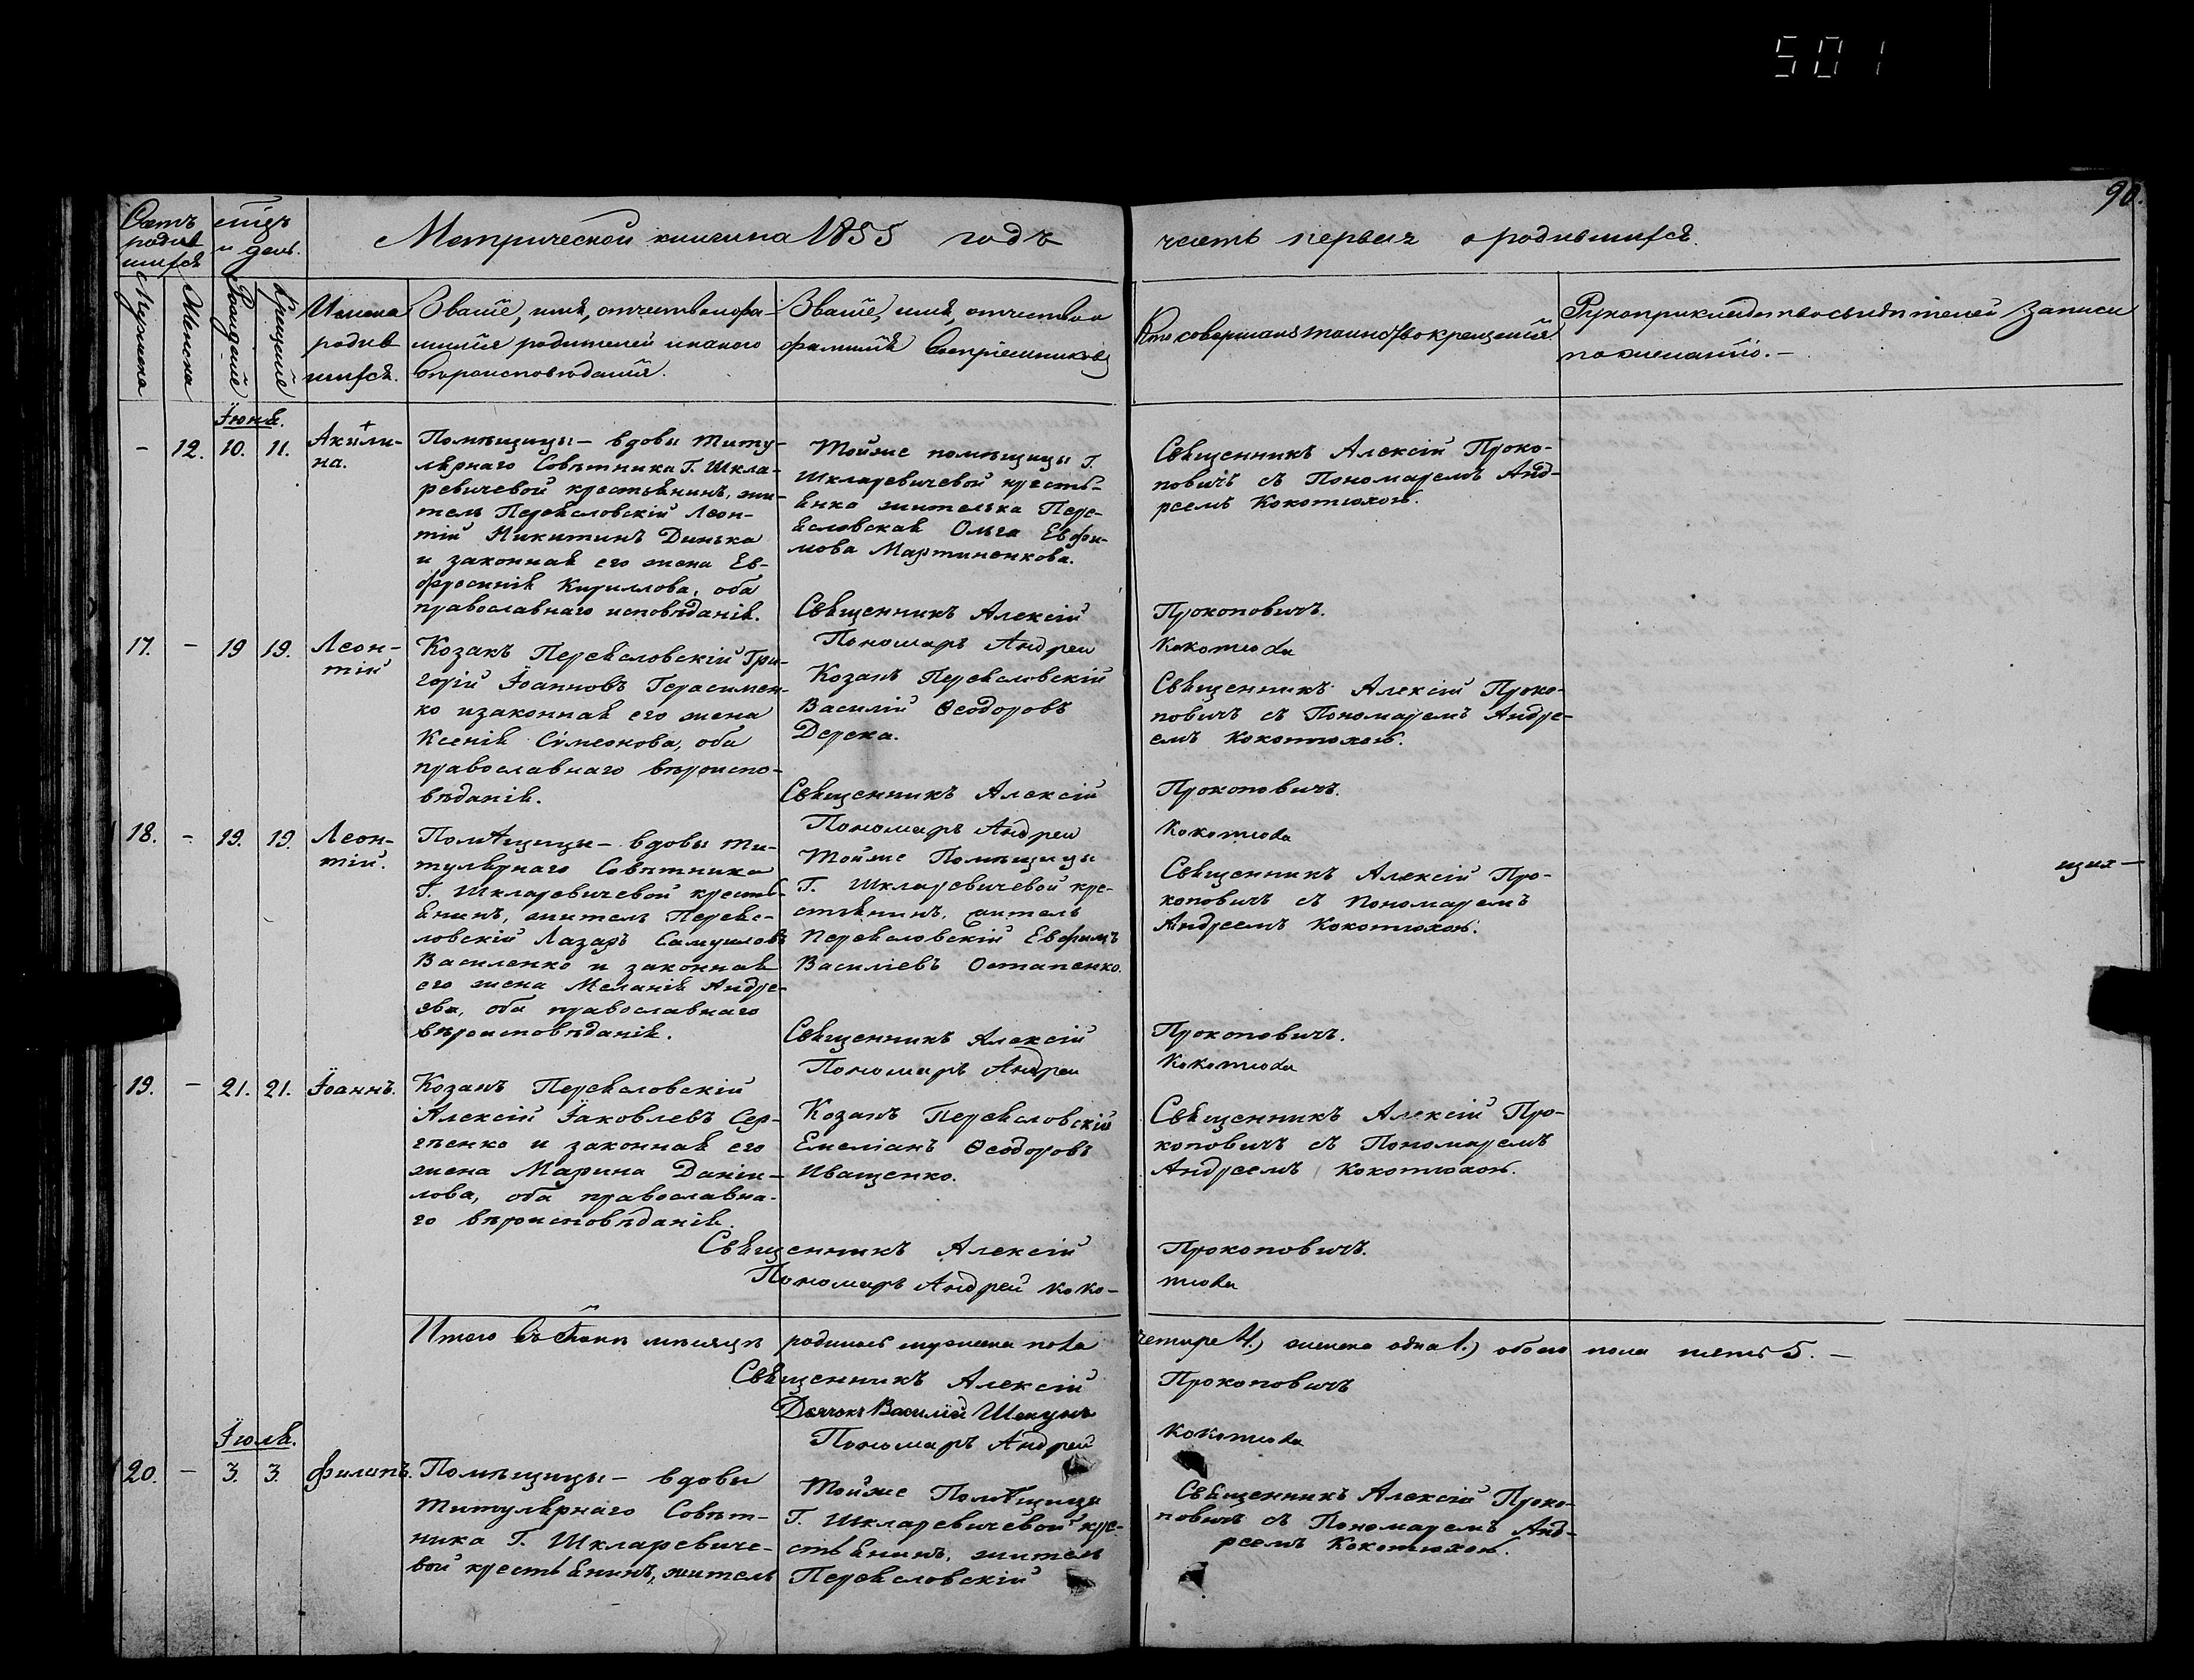 501
90.
Счетъ родив шихся
мѣсяцъ и день.
Метрической книги на 1855 годъ
часть первая о родившихся.
Мужеска
Женска
Рожденія
Крещенія
Имена
родив
шихся.
Званіе, имя, отчество и фа-
милія родителей и какого
вѣроисповѣданія.
Званіе, имя, отчество и
фамилія Воспріемниковъ
Кто совершалъ таинство крещенія.
Рукоприкладство свидѣтелей записи
по желанію. —
Іюня.
- 12. 10. 11.
Акили-
на.
Помѣщицы – вдовы титу-
лярнаго Совѣтника Г. Шкла-
ревичевой крестьянинъ, жи-
тель Переясловскій Леон-
тій Никитинъ Динька
и законная его жена Ев-
фросинія Кириллова, оба
православнаго исповѣданія.
Тойже помѣщицы Г.
Шкларевичевой кресть-
янка жителька Пере-
ясловская Ольга Евфи-
мова Мартиненкова.
Священникъ Алексій Проко-
повичъ съ Пономаремъ Анд-
реемъ Кокотюхою.
Священникъ Алексій Прокоповичъ.
Пономаръ Андреи Кокотюха
17. - 19 19.
Леон-
тій
Козакъ Переясловскій Гри-
горій Іоанновъ Герасимен-
ко и законная его жена
Ксенія Сімеонова, оба
православнаго вѣроиспо-
вѣданія.
Козакъ Переясловскій
Василій Ѳеодоровъ
Дерека.
Священникъ Алексій Проко-
повичъ съ Пономаремъ Андре-
емъ Кокотюхою.
Священникъ Алексій Прокоповичъ.
Пономаръ Андреи Кокотюха
18. - 19. 19.
Леон-
тій.
Помѣщицы – вдовы ти-
тулярнаго Совѣтника
Г. Шкларевичевой кресть-
янинъ, житель Перея-
словскій Лазаръ Самуиловъ
Василенко и законная
его жена Меланія Андре-
ева, оба православнаго
вѣроисповѣданія.
Тойже Помѣщицы
Г. Шкларевичевой кре-
стьянинъ, житель
Переясловскій Евфимъ
Василіевъ Остапенко.
Священникъ Алексій Про-
коповичъ съ Пономаремъ
Андреемъ Кокотюхою.
щих —
Священникъ Алексій Прокоповичъ.
Пономаръ Андреи Кокотюха
19. - 21. 21. Іоаннъ.
Козакъ Переясловскій
Алексій Іаковлевъ Сер-
гѣенко и законная его
жена Марина Даніи-
лова, оба православна-
го вѣроисповѣданія.
Козакъ Переясловскій
Емеліанъ Ѳеодоровъ
Иващенко.
Священникъ Алексій Про-
коповичъ съ Пономаремъ
Андреемъ Кокотюхою.
Священникъ Алексій Прокоповичъ.
Пономаръ Андрей Коко-тюха
Итого въ Іюнѣ мѣсяцѣ родилось мужеска пола четыре 4.) женска одна 1.) обоего пола пять 5. —
Священникъ Алексій Прокоповичъ
Дячокъ Василій Шекунъ
Пономаръ Андрей Кокотюха
Іюля.
20. - 3. 3. Филипъ.
Помѣщицы – вдовы
титулярнаго Совѣт-
ника Г. Шкларевиче-
вой крестьянинъ, житель
Тойже Помѣщицы
Г. Шкларевичевой кре-
стьянинъ, житель
Переясловскій
Священникъ Алексій Проко-
повичъ съ Пономаремъ Анд-
реемъ Кокотюхою.